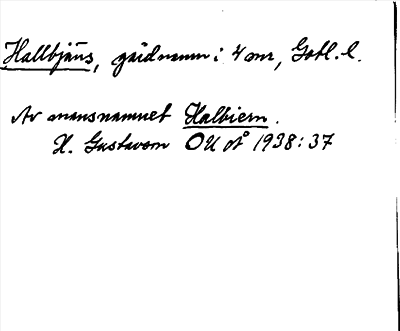 Hallbjäns, gårdnamn i 4 snr, Gotl. l.
Av mansnamnet Halbiern.
H. Gustavson OUÅ 1938: 37